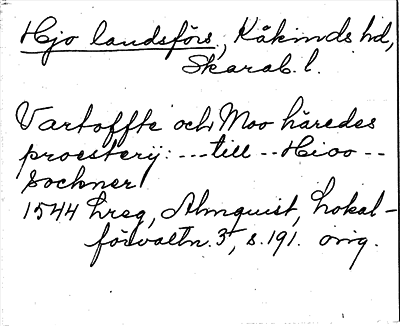 Hjo landsförs., Kåkinds hd,
Skarab. l.
Vartoffte och Moo häredes
proesterij: --- till -- Hioo --
sochner
1544 hreg, Almquist, Lokal-
förvaltn. 3, s. 191. orig.